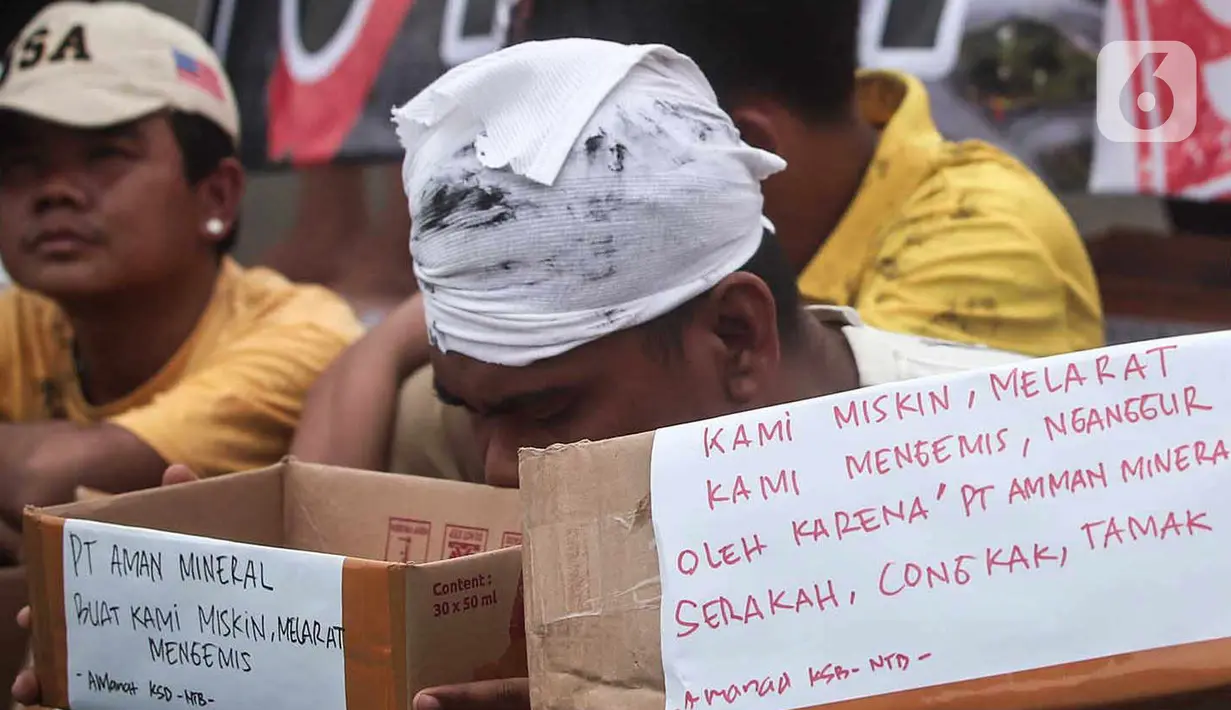 SA
6
PT AMAN MINERAL
BUAT KAMI MISKIN, MELARAT
MENGEMIS
- AMANAT KSB -NTB-
Content :
30 x 50 ml
KAMI MISKIN, MELARAT
KAMI MENGEMIS, NGANGGUR
OLEH KARENA" PT AMMAN MINERA
SERAKAH, CONGKAK, TAMAK
Amanad KSB-NTB-